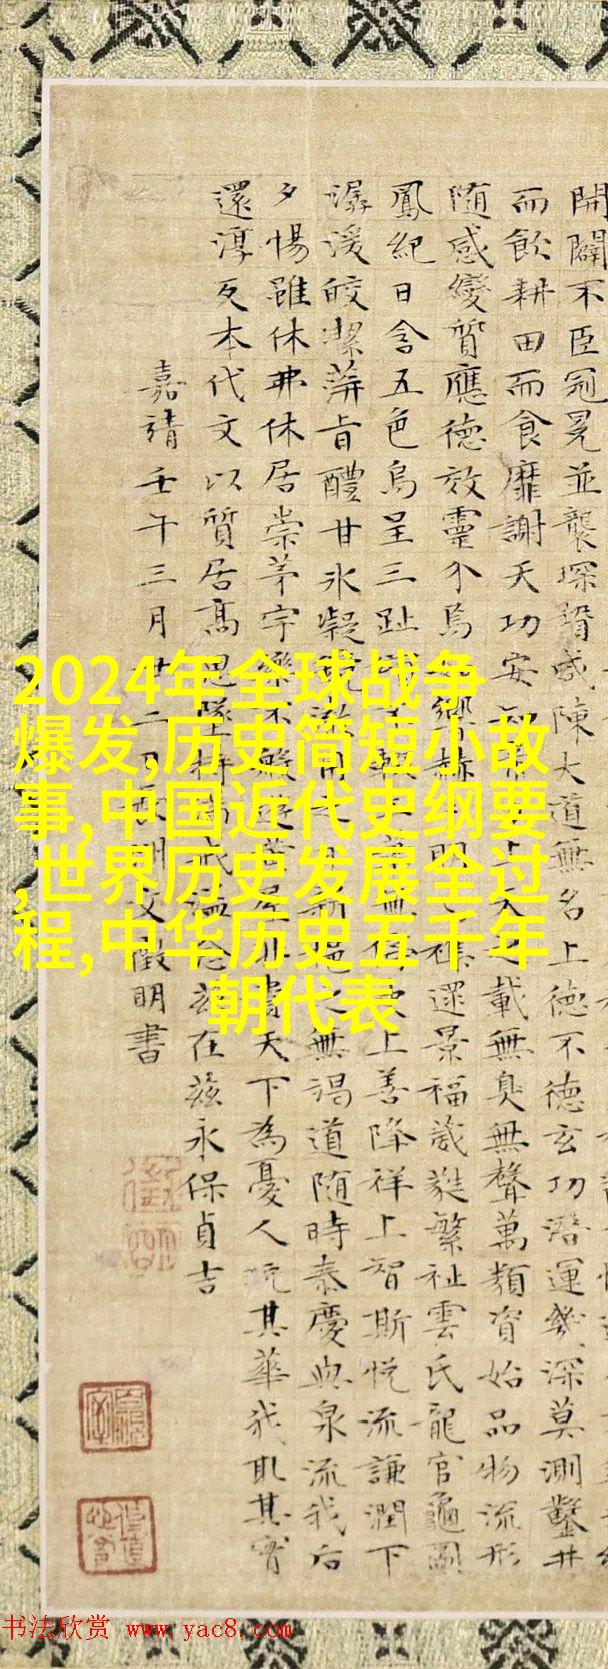 開闢不臣冠冕並襲琛贄咸陳大道無名上德不德玄功潛運幾深莫測鑿井
而飲耕田而食靡謝天功安上天載無臭無聲萬類資始品物流形
随感變質應德效靈介焉響赫明遝景福葳蕤繁祉雲氏龍官龜圖
鳳紀日含五色烏呈三趾無上善降祥上智斯悅流謙潤下
潺湲皎潔蓱旨醴甘冰凝無竭道随時泰慶與泉流我后
夕惕雖休弗休居崇茅宇樂不天下為憂人玩其華我取其實
還淳反本代文以質居高思墜持在茲永保貞吉
嘉靖壬午三月廿二日徵明書
2024年全球战争
爆发,历史简短小故
事,中国近代史纲要
,世界历史发展全过
程,中华历史五千年
朝代表
书法欣赏 www.yac8.com